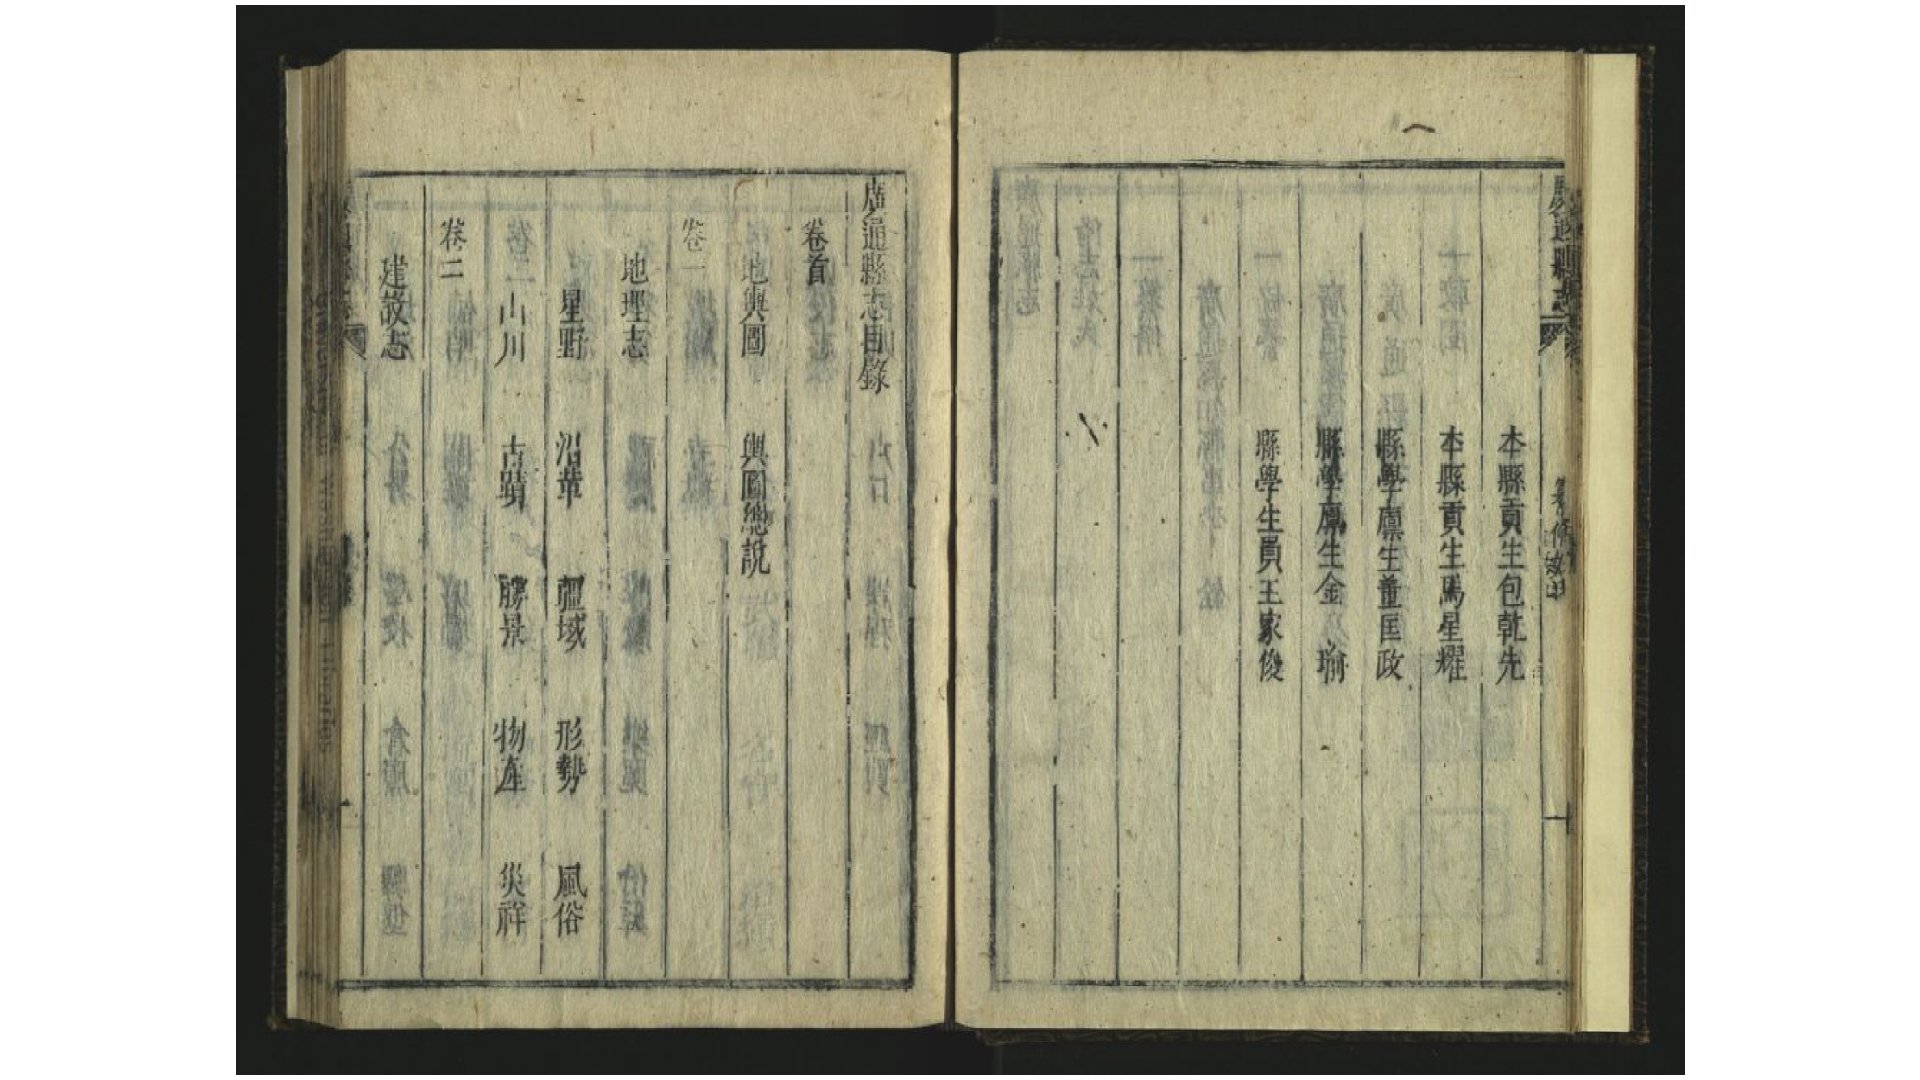 廣通縣志
本縣貢生包乾先
本縣貢生馬星耀
縣學廩生董匡政
縣學廩生金瑜
縣學生員王家俊
廣通縣志目錄
卷首
地輿圖 輿圖總說
卷一
地理志
星野 沿革 疆域 形勢 風俗
山川 古蹟 勝景 物產 災祥
卷二
建設志